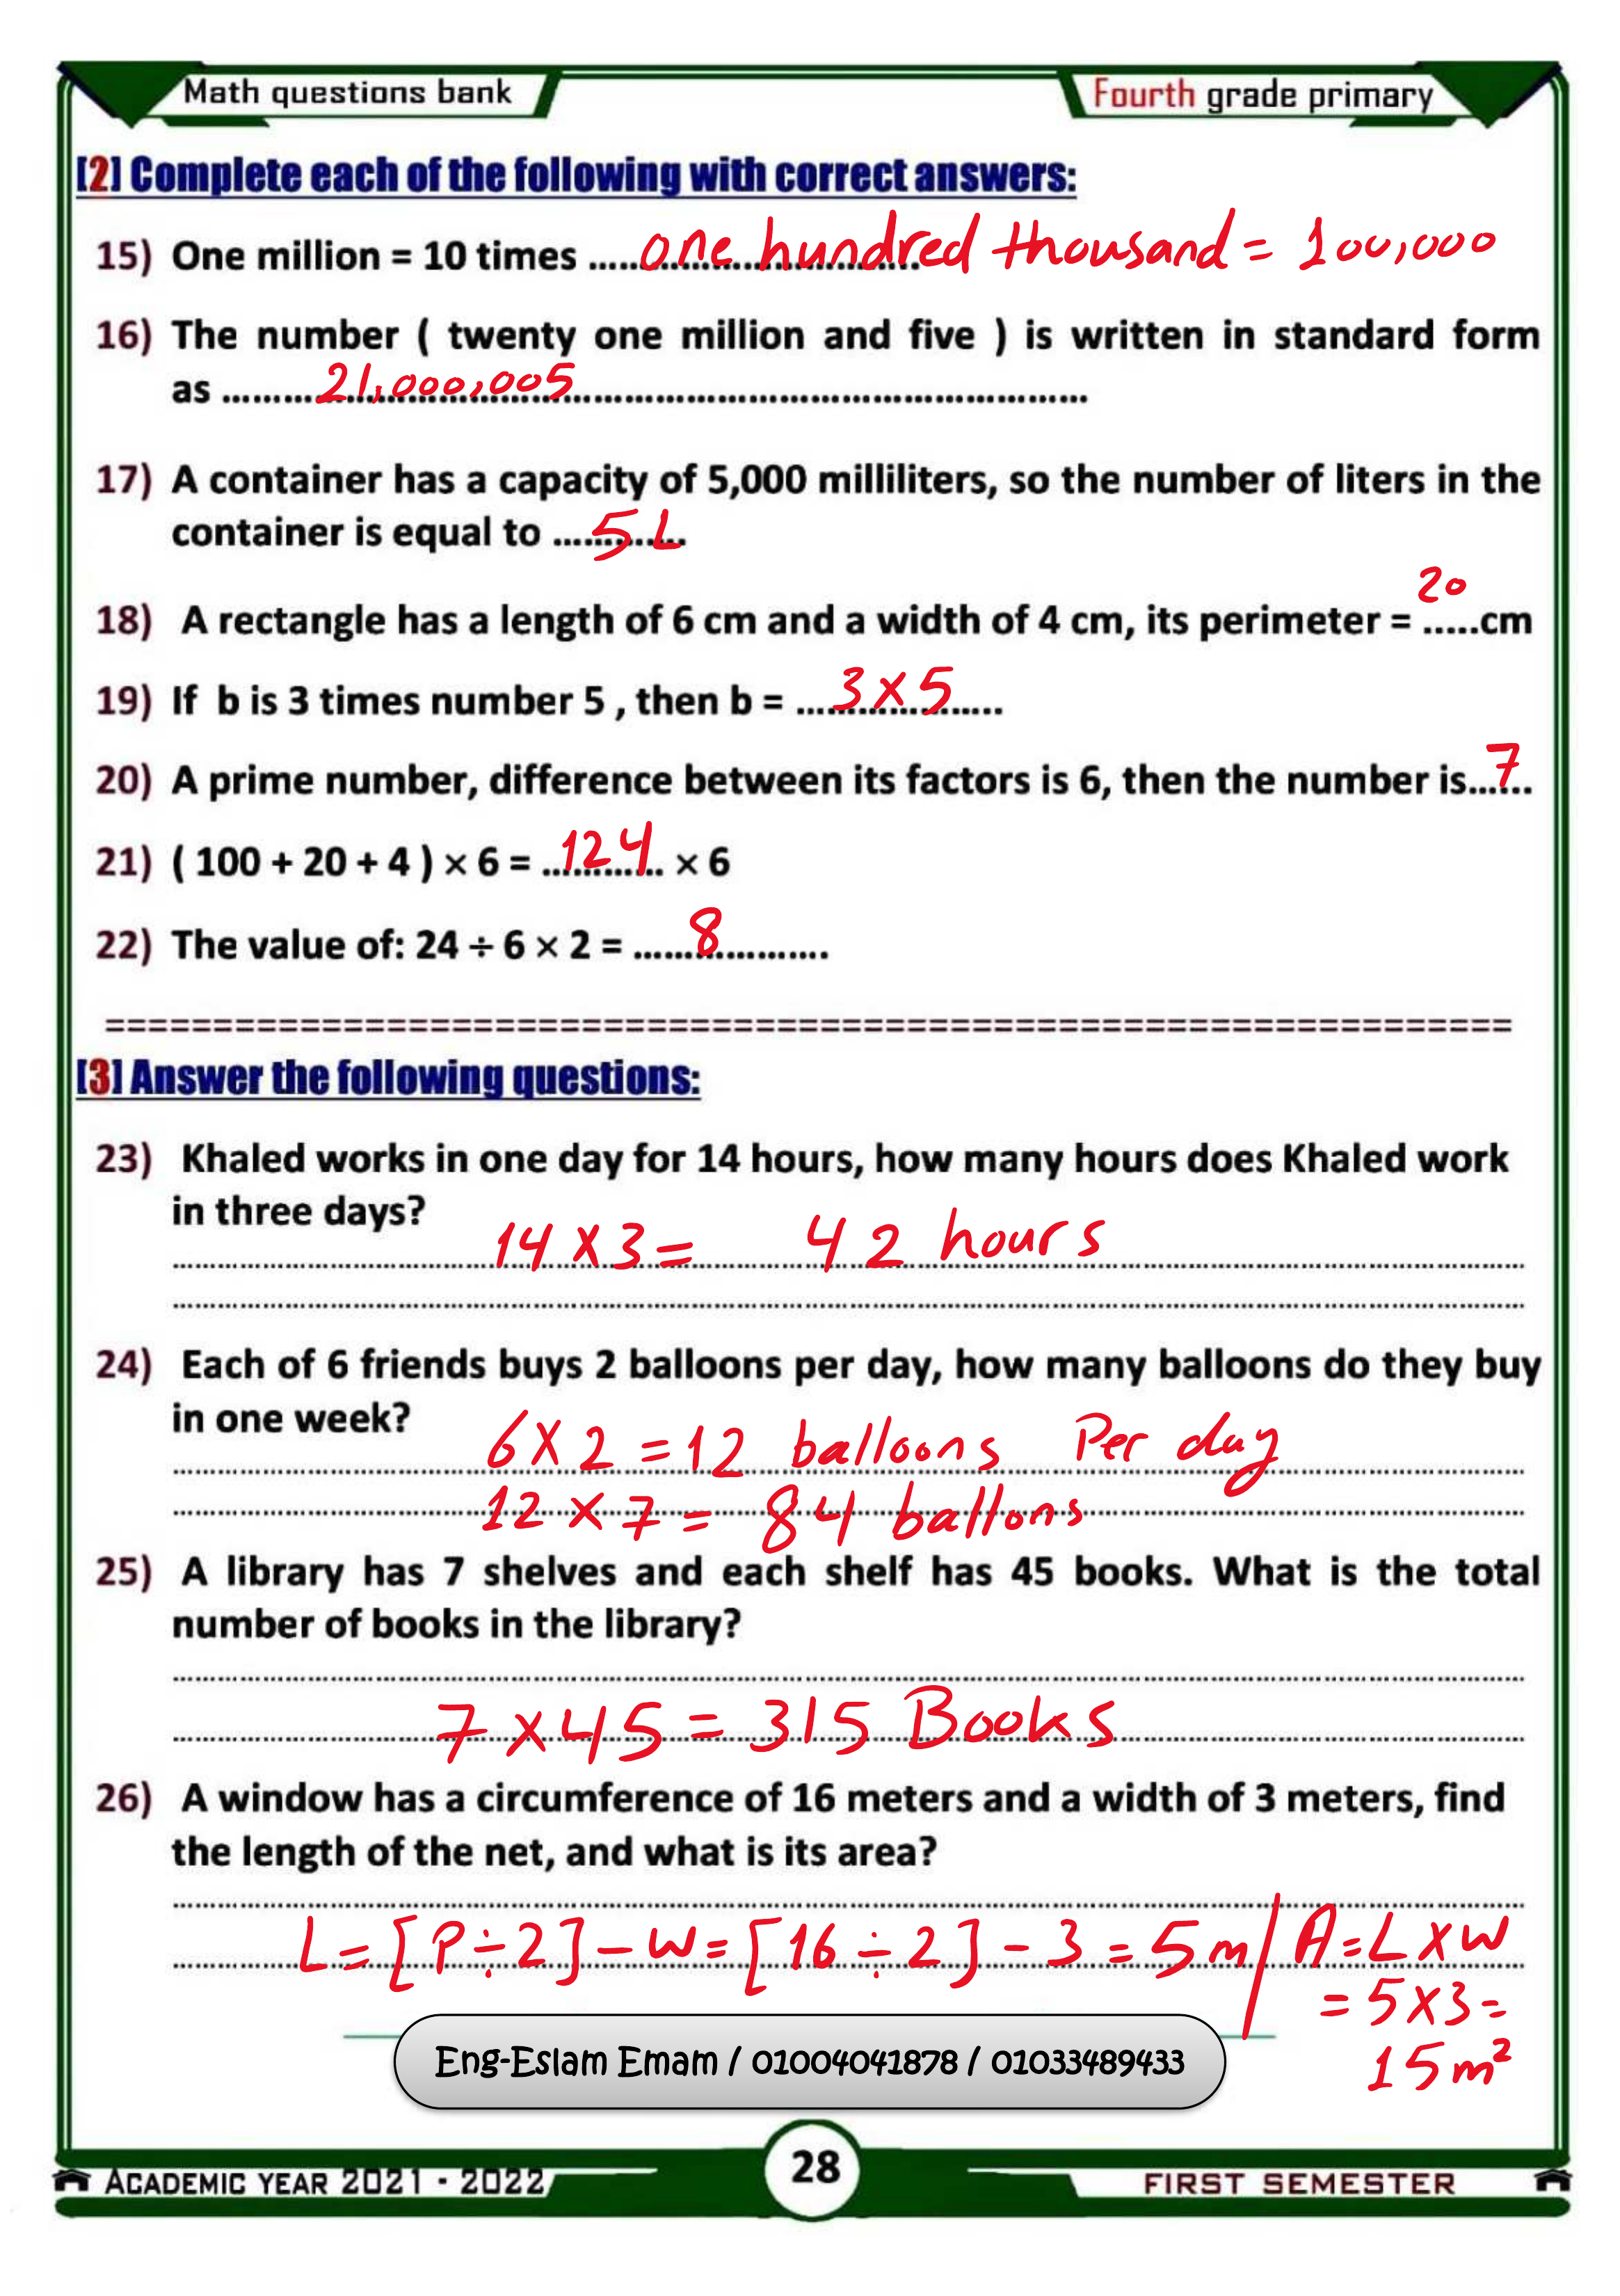 Math questions bank
Fourth grade primary
[2] Complete each of the following with correct answers:
15) One million = 10 times ........ one hundred thousand = 100,000
16) The number ( twenty one million and five ) is written in standard form
as ........ 21,000,005 ........
17) A container has a capacity of 5,000 milliliters, so the number of liters in the
container is equal to ..... 5 L
20
18) A rectangle has a length of 6 cm and a width of 4 cm, its perimeter = .....cm
19) If b is 3 times number 5 , then b = ... 3 × 5 .....
20) A prime number, difference between its factors is 6, then the number is... 7 ...
21) ( 100 + 20 + 4 ) × 6 = ... 124 ... × 6
22) The value of: 24 ÷ 6 × 2 = ...... 8 ..........
==================================================
[3] Answer the following questions:
23) Khaled works in one day for 14 hours, how many hours does Khaled work
in three days?
14 × 3 = 42 hours
24) Each of 6 friends buys 2 balloons per day, how many balloons do they buy
in one week?
6 × 2 = 12 balloons Per day
12 × 7 = 84 ballons
25) A library has 7 shelves and each shelf has 45 books. What is the total
number of books in the library?
7 × 45 = 315 Books
26) A window has a circumference of 16 meters and a width of 3 meters, find
the length of the net, and what is its area?
L = [P ÷ 2] - W = [16 ÷ 2] - 3 = 5 m / A = L × W
= 5 × 3 =
15 m²
Eng-Eslam Emam / 01004041878 / 01033489433
28
ACADEMIC YEAR 2021 - 2022
FIRST SEMESTER